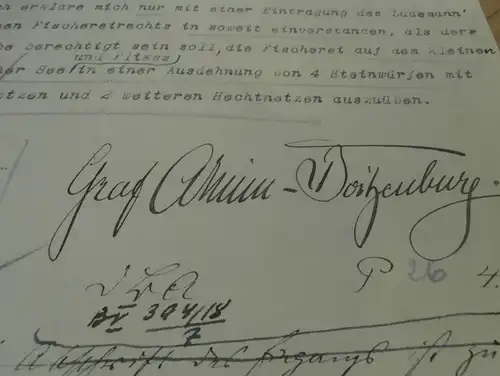 ch erkläre mich nur mit einer Eintragung des Lüdemann'
hen Fischereirechts in soweit einverstanden, als ders
be berechtigt sein soll, die Fischerei auf dem kleinen
und Fitses
her See/in einer Ausdehnung von 4 Steinwürfen mit
etzen und 2 weiteren Hechtnetzen auszuüben.
Graf Arnim-Boitzenburg.
P 26 4.
BV 304/18
7
Abschrift des Eingangs ist zu